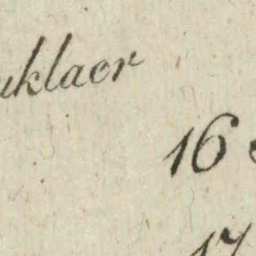 uklaer
16
17